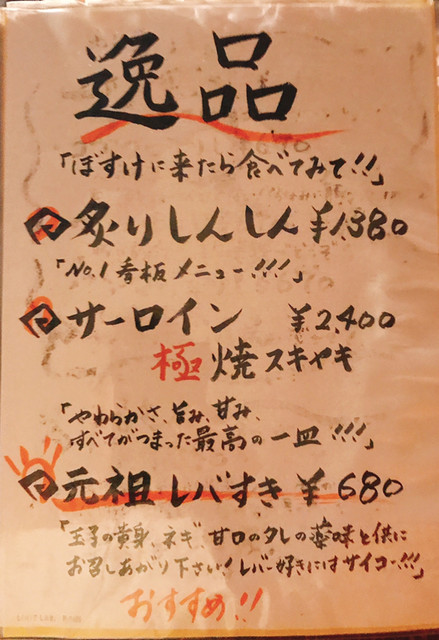 逸品
「ぼすけに来たら食べてみて!!」
炙りしんしん ¥1,380
「No.1 看板メニュー!!!」
サーロイン ¥2,400
極焼スキヤキ
「やわらかさ、旨み、甘み、
すべてがつまった最高の一皿!!!」
元祖・レバすき ¥680
「玉子の黄身、ネギ、甘口のタレの薬味と供に
お召しあがり下さい!レバー好きにはサイコー!!!」
おすすめ!!